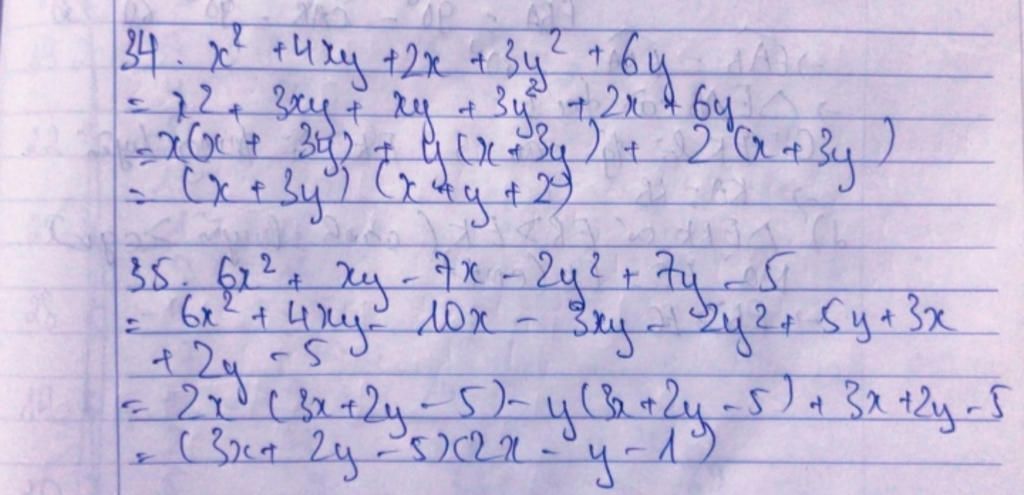 34. x² + 4xy + 2x + 3y² + 6y
= x2 + 3xy + xy + 3y² + 2x + 6y
= x(x + 3y) + y(x + 3y) + 2(x + 3y)
= (x + 3y)(x + y + 2)
35. 6x² + xy - 7x - 2y² + 7y - 5
= 6x² + 4xy - 10x - 3xy - 2y² + 5y + 3x
+ 2y - 5
= 2x(3x + 2y - 5) - y(3x + 2y - 5) + 3x + 2y - 5
= (3x + 2y - 5)(2x - y - 1)